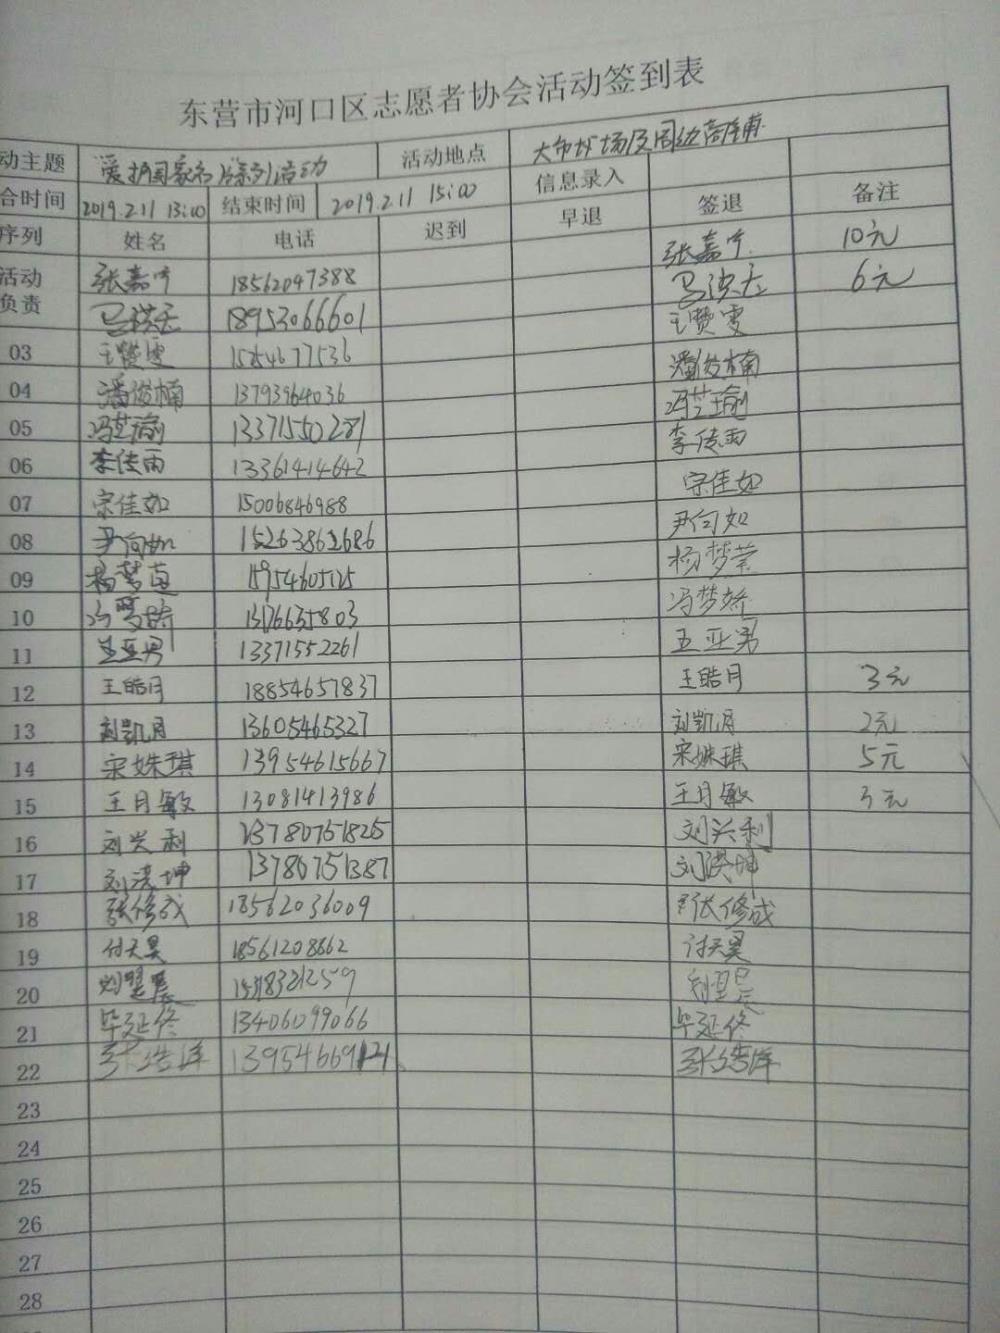 东营市河口区志愿者协会活动签到表
动主题 爱护国家 系列活动 活动地点 大市场及周边商铺
合时间 2019.2.11 13:00 结束时间 2019.2.11 15:00 信息录入
序列 姓名 电话 迟到 早退 签退 备注
活动 张嘉宁 18562047388 张嘉宁 10元
负责 18953066601 6元
03 王赞雯 15254677536 王赞雯
04 潘俊楠 13793964036 潘俊楠
05 冯芷瑜 13371550281 冯芷瑜
06 李传雨 13361414642 李传雨
07 宗佳如 15006846988 宗佳如
08 尹向如 15263862686 尹向如
09 15954605125
10 冯梦娇 13766635803 冯梦娇
11 王亚男 13371552261 王亚男
12 王皓月 18854657837 王皓月 3元
13 刘凯月 13605465327 刘凯月 2元
14 宋姝琪 13954615667 宋姝琪 5元
15 王月敏 13081413986 王月敏 3元
16 刘兴利 13780751825 刘兴利
17 刘洪坤 13780751387 刘洪坤
18 张修成 18562036009 张修成
19 付天昊 18561208862 付天昊
20 刘罡辰 刘罡辰
21 毕延修 13406099066 毕延修
22 张 139546691
23
24
25
26
27
28